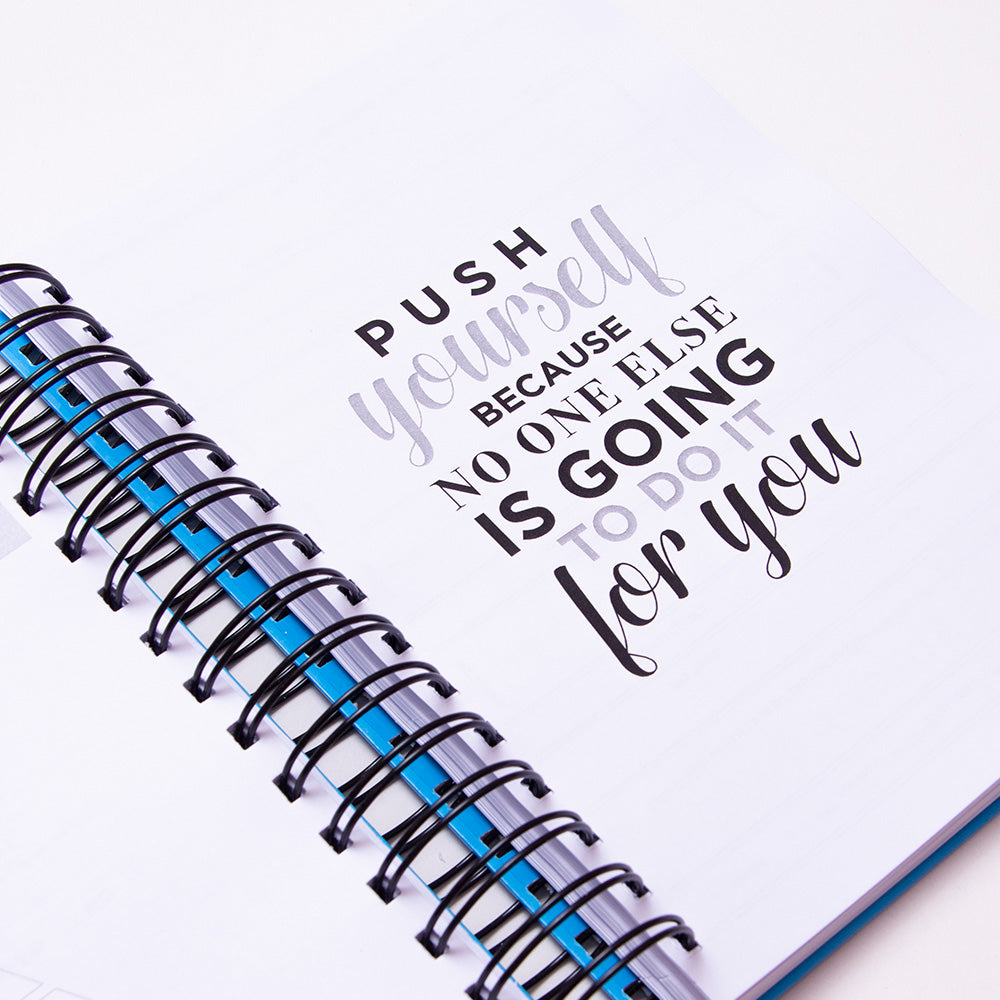 PUSH
yourself
BECAUSE
NO ONE ELSE
IS GOING
TO DO IT
for you